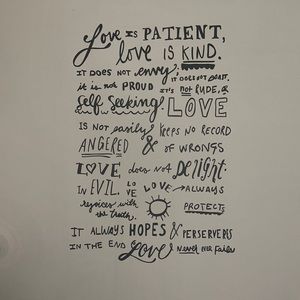 Love is PATIENT,
love is KIND.
IT DOES NOT envy, IT DOES NOT BOAST.
it is not PROUD IT'S not RUDE, or
Self Seeking. LOVE
IS NOT easily KEEPS NO RECORD
ANGERED & OF WRONGS
LOVE does not Delight
IN EVIL. LOVE LOVE ALWAYS
rejoices with the truth. PROTECTS
IT ALWAYS HOPES & PERSERVERS
IN THE END Love Never Ever Fails